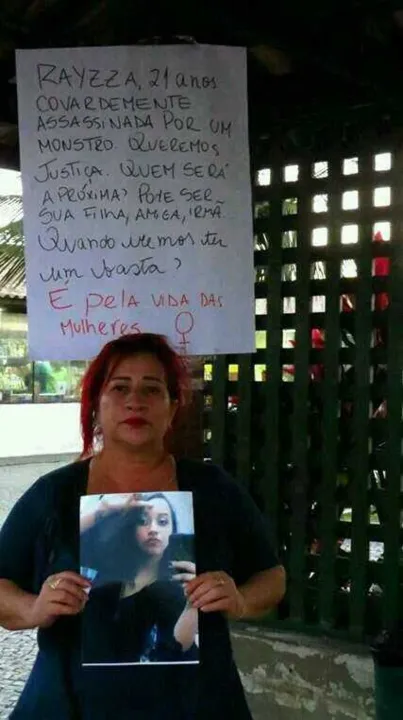 RAYZZA, 21 anos
COVARDEMENTE
ASSASSINADA POR UM
MONSTRO. QUEREMOS
JUSTIÇA. QUEM SERÁ
A PRÓXIMA? PODE SER
SUA FILHA, AMIGA, IRMÃ...
Quando iremos ter
um basta?
É pela VIDA DAS
Mulheres ♀